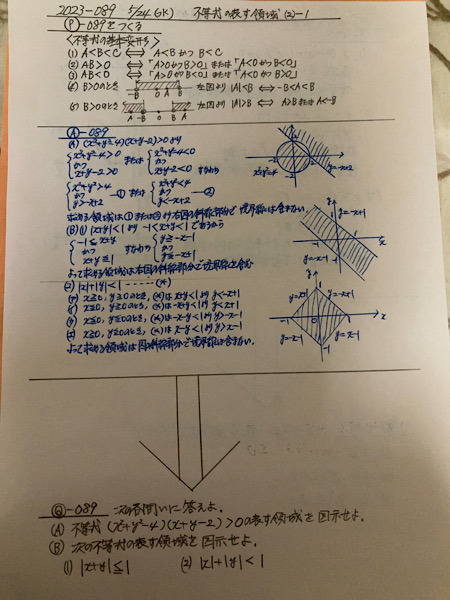 2023-089 5/24(水) 不等式の表す領域(2)-1
Ⓟ-089をつくる
<不等式の基本変形>
(1) A<B<C ⇔ A<B かつ B<C
(2) AB>0 ⇔ 「A>0かつB>0」または「A<0かつB<0」
(3) AB<0 ⇔ 「A>0かつB<0」または「A<0かつB>0」
(4) B>0のとき -B 0 A B 左図より |A|<B ⇔ -B<A<B
(5) B>0のとき A -B 0 B A 左図より |A|>B ⇔ A>B または A<-B
Ⓐ-089
(A) (x²+y²-4)(x+y-2)>0 より
x²+y²-4>0 かつ x+y-2>0 または x²+y²-4<0 かつ x+y-2<0 すなわち
x²+y²>4 かつ y>-x+2 ー① または x²+y²<4 かつ y<-x+2 ー②
x²+y²=4
y=-x+2
求める領域は①または②だけ右図の斜線部分で境界線は含まない
(B) (1) |x+y|<1 より -1<x+y<1 であるから
-1≦x+y かつ x+y≦1 すなわち y≧-x-1 かつ y≦-x+1
y=-x+1
y=-x-1
よって求める領域は右図の斜線部分で境界線を含む
(2) |x|+|y|<1 ……(*)
(ア) x≧0, y≧0のとき, (*)は x+y<1 より y<-x+1
x≦0, y≧0のとき, (*)は -x+y<1 より y<x+1
x≦0, y≦0のとき, (*)は -x-y<1 より y>-x-1
x≧0, y≦0のとき, (*)は x-y<1 より y>x-1
y=x+1 y=-x+1
y=-x-1 y=x-1
よって求める領域は図の斜線部分で境界線は含まない.
Ⓠ-089 次の各問いに答えよ.
(A) 不等式 (x²+y²-4)(x+y-2)>0の表す領域を図示せよ.
(B) 次の不等式の表す領域を図示せよ.
(1) |x+y|≦1 (2) |x|+|y|<1